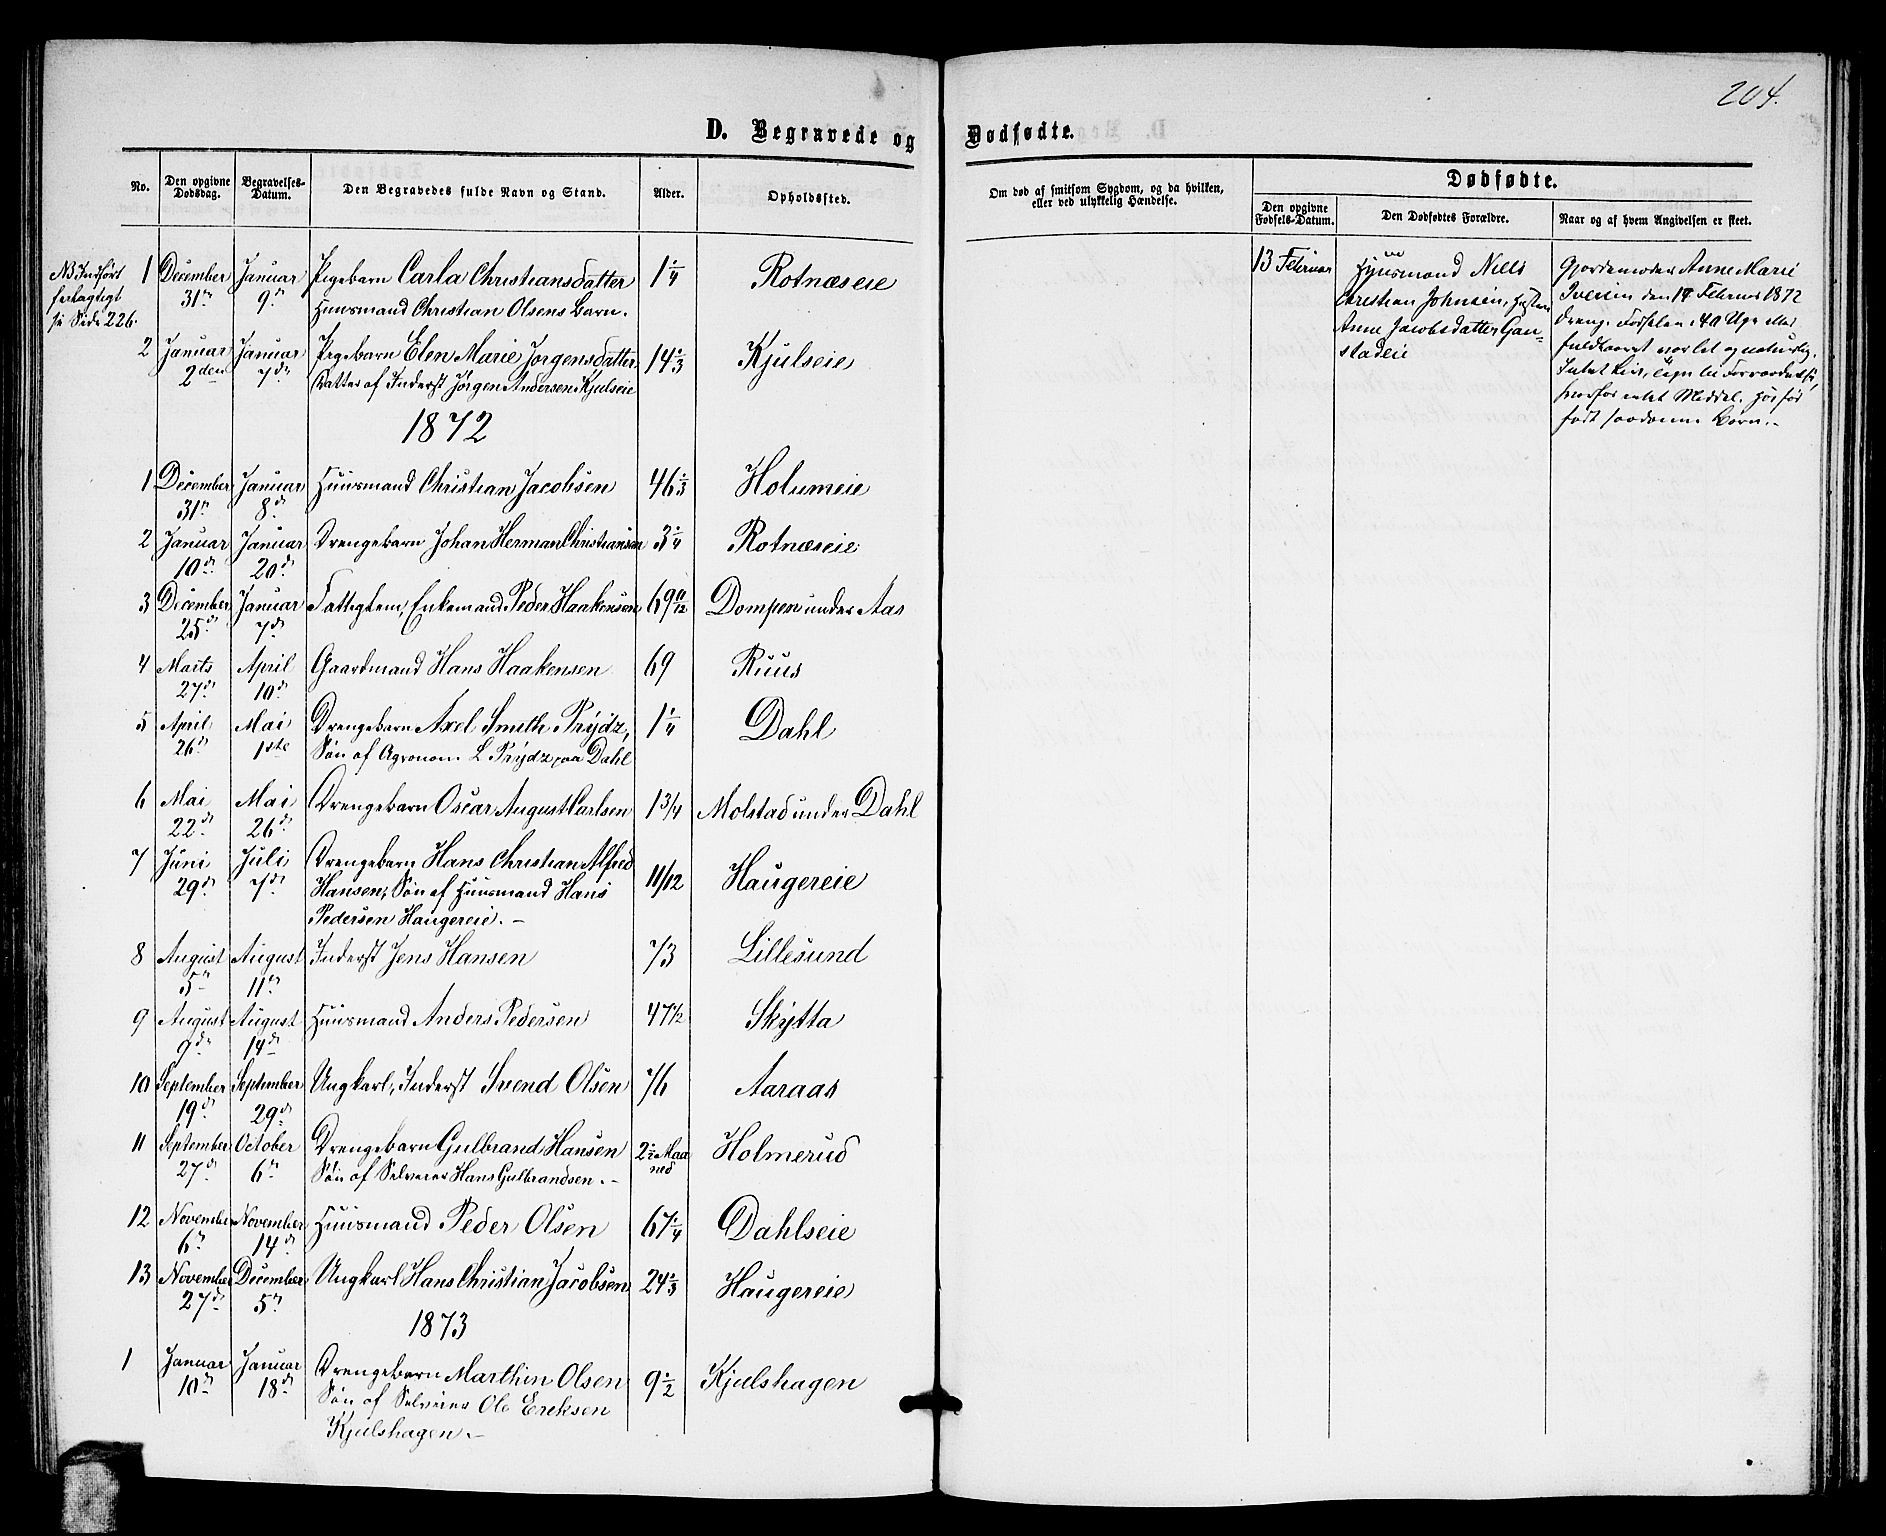 204.
D. Begravede og Dødfødte.
No.
Den opgivne Dødsdag.
Begravelses-Datum.
Den Begravedes fulde Navn og Stand.
Alder.
Opholdssted.
Om død af smitsom Sygdom, og da hvilken,
eller ved ulykkelig Hændelse.
Dødfødte.
Den opgivne Fødsels-Datum.
Den Dødfødtes Forældre.
Naar og af hvem Angivelsen er skeet.
NB Indført
feilagtigt
se Side 226.
1 December Januar Pigebarn Carla Christiansdatter 1 1/4 Rotnæseie
31te 9de Huusmand Christian Olsens Barn.
2 Januar Januar Pigebarn Elen Marie Jørgensdatter 14 1/3 Kjulseie
2den 7de Datter af Inderst Jørgen Andersen Kjulseie
1872
1 December Januar Huusmand Christian Jacobsen 46 1/3 Holumeie
31te 8de
2 Januar Januar Drengebarn Johan Herman Christiansen 3 1/4 Rotnæseie
10de 20de
3 December Januar Fattiglem, Enkemand Peder Haakensen 69 11/12 Dompen under Aas
25de 7de
4 Marts April Gaardmand Hans Haakensen 69 Ruus
27de 10de
5 April Mai Drengebarn Axel Smith Prÿdz, 1 1/4 Dahl
26de 1ste Søn af Agronom L Prÿdz paa Dahl
6 Mai Mai Drengebarn Oscar August Carlsen 1 3/4 Molstad under Dahl
22de 26de
7 Juni Juli Drengebarn Hans Christian Alfred 11/12 Haugereie
29de 7de Hansen, Søn af Huusmand Hans
Pedersen Haugereie. -
8 August August Inderst Jens Hansen 73 Lillesund
5te 11te
9 August August Huusmand Anders Pedersen 47 1/2 Skÿtta
9de 14de
10 September September Ungkarl, Inderst Svend Olsen 76 Aaraas
19de 29de
11 September October Drengebarn Gulbrand Hansen 2 1/2 Maaned Holmerud
27de 6te Søn af Selveier Hans Gulbrandsen. -
12 November November Huusmand Peder Olsen 67 1/4 Dahlseie
6te 14de
13 November December Ungkarl Hans Christian Jacobsen 24 1/3 Haugereie
27de 5te
1873
1 Januar Januar Drengebarn Marthin Olsen 9 1/2 Kjulshagen
10de 18de Søn af Selveier Ole Ereksen
Kjulshagen. -
13 Februar
Huusmand Niels
Christian Johnsen, Hustru
Anne Jacobsdatter Gau-
stadeie
Gjordemoder Anne Marie
Iversen den 14 Februar 1872
Dreng. Fødselen 40 Uge eller
fuldbaaret var let og naturlig.
Intet Liv,
hvorfor intet Middel. før
født saadanne Børn. -